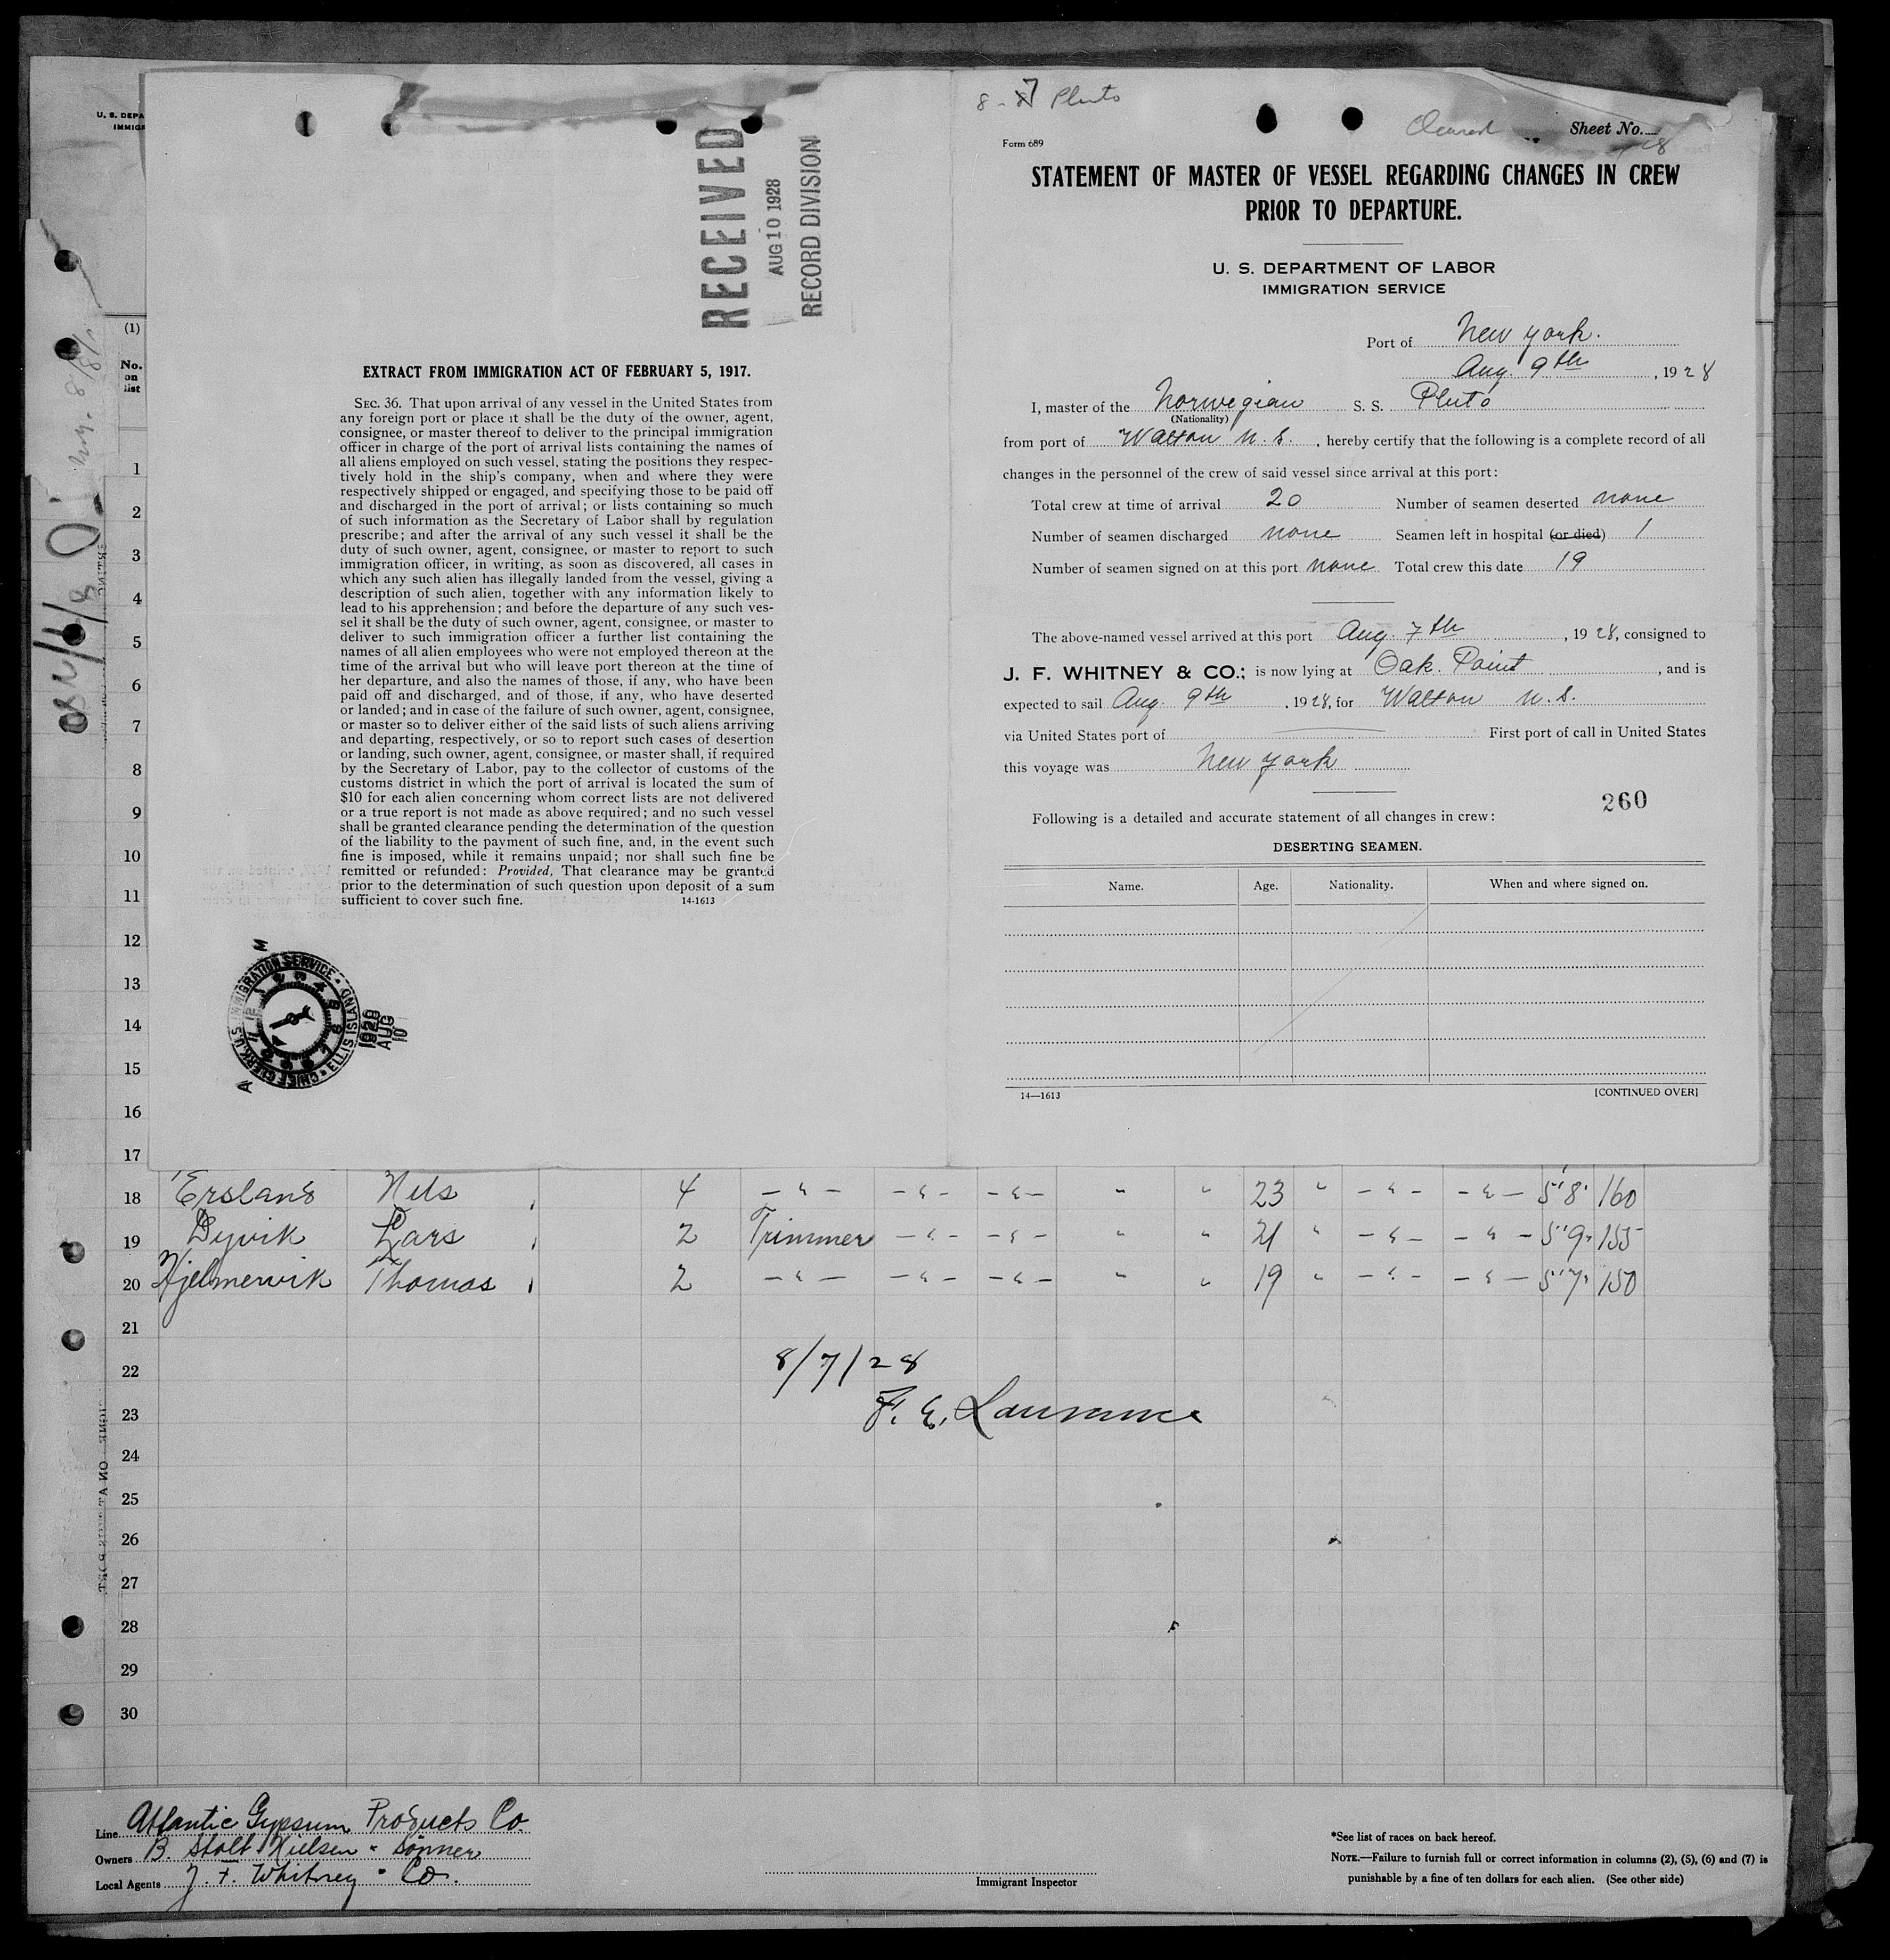 U. S. DEPA
IMMIGR
(1)
No.
on
list
1
2
3
4
5
6
7
8
9
10
11
12
13
14
15
16
17
RECEIVED
AUG 10 1928
RECORD DIVISION
EXTRACT FROM IMMIGRATION ACT OF FEBRUARY 5, 1917.
SEC. 36. That upon arrival of any vessel in the United States from
any foreign port or place it shall be the duty of the owner, agent,
consignee, or master thereof to deliver to the principal immigration
officer in charge of the port of arrival lists containing the names of
all aliens employed on such vessel, stating the positions they respec-
tively hold in the ship's company, when and where they were
respectively shipped or engaged, and specifying those to be paid off
and discharged in the port of arrival; or lists containing so much
of such information as the Secretary of Labor shall by regulation
prescribe; and after the arrival of any such vessel it shall be the
duty of such owner, agent, consignee, or master to report to such
immigration officer, in writing, as soon as discovered, all cases in
which any such alien has illegally landed from the vessel, giving a
description of such alien, together with any information likely to
lead to his apprehension; and before the departure of any such ves-
sel it shall be the duty of such owner, agent, consignee, or master to
deliver to such immigration officer a further list containing the
names of all alien employees who were not employed thereon at the
time of the arrival but who will leave port thereon at the time of
her departure, and also the names of those, if any, who have been
paid off and discharged, and of those, if any, who have deserted
or landed; and in case of the failure of such owner, agent, consignee,
or master so to deliver either of the said lists of such aliens arriving
and departing, respectively, or so to report such cases of desertion
or landing, such owner, agent, consignee, or master shall, if required
by the Secretary of Labor, pay to the collector of customs of the
customs district in which the port of arrival is located the sum of
$10 for each alien concerning whom correct lists are not delivered
or a true report is not made as above required; and no such vessel
shall be granted clearance pending the determination of the question
of the liability to the payment of such fine, and, in the event such
fine is imposed, while it remains unpaid; nor shall such fine be
remitted or refunded: Provided, That clearance may be granted
prior to the determination of such question upon deposit of a sum
sufficient to cover such fine. 14-1613
CHIEF CLERK, U.S. IMMIGRATION SERVICE · ELLIS ISLAND
1928
AUG
10
8-7 Pluto
Cleared
Sheet No.
Form 689
STATEMENT OF MASTER OF VESSEL REGARDING CHANGES IN CREW
PRIOR TO DEPARTURE.
U. S. DEPARTMENT OF LABOR
IMMIGRATION SERVICE
Port of New York.
Aug. 9th, 1928
I, master of the Norwegian S. S. Pluto
(Nationality)
from port of Walton N. S., hereby certify that the following is a complete record of all
changes in the personnel of the crew of said vessel since arrival at this port:
Total crew at time of arrival 20 Number of seamen deserted none
Number of seamen discharged none Seamen left in hospital (or died) 1
Number of seamen signed on at this port none Total crew this date 19
The above-named vessel arrived at this port Aug. 7th, 1928, consigned to
J. F. WHITNEY & CO.; is now lying at Oak. Point, and is
expected to sail Aug. 9th, 1928, for Walton N. S.
via United States port of First port of call in United States
this voyage was New York
260
Following is a detailed and accurate statement of all changes in crew:
DESERTING SEAMEN.
Name. Age. Nationality. When and where signed on.
14—1613 [CONTINUED OVER]
18 Ersland Nils 4 - " - - " - - " - " " 23 " - " - - " - 5'8" 160
19 Dyvik Lars 2 Trimmer - " - - " - " " 21 " - " - - " - 5'9" 155
20 Hjelmervik Thomas 2 - " - - " - - " - " " 19 " - " - - " - 5'7" 150
21
22
23
24
25
26
27
28
29
30
8/7/28
F. E. Laurence
Line Atlantic Gypsum Products Co.
Owners B. Stolt Nielsen & Sønner
Local Agents J. F. Whitney & Co.
Immigrant Inspector
*See list of races on back hereof.
NOTE.—Failure to furnish full or correct information in columns (2), (5), (6) and (7) is
punishable by a fine of ten dollars for each alien. (See other side)